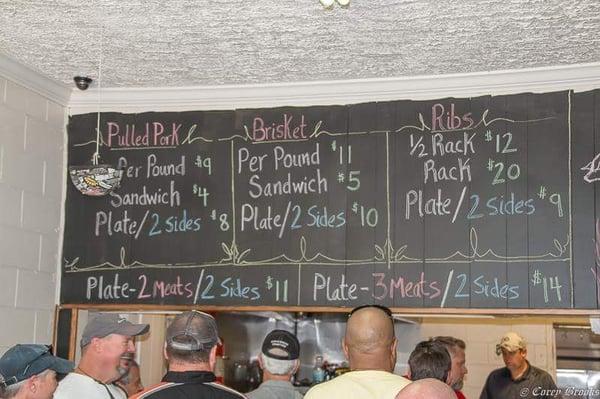 Pulled Pork
Per Pound $9
Sandwich $4
Plate/2 Sides $8
Brisket
Per Pound $11
Sandwich $5
Plate/2 Sides $10
Ribs
½ Rack $12
Rack $20
Plate/2 Sides $9
Plate-2 Meats/2 Sides $11
Plate-3 Meats/2 Sides $14
© Corey Brooks